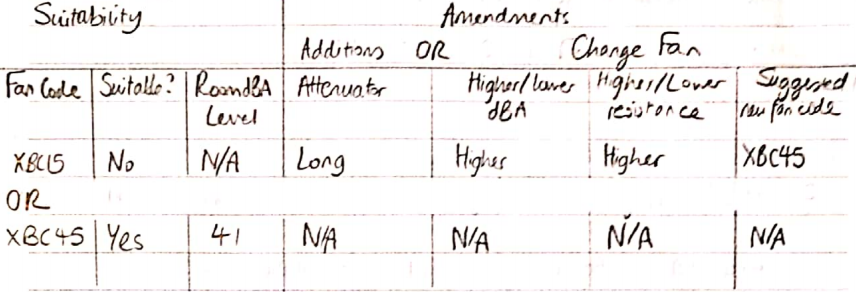 Suitability Amendments
Additions OR Change Fan
Fan Code Suitable? Room dBA Level Attenuator Higher/lower dBA Higher/Lower resistance Suggested new fan code
XBC15 No N/A Long Higher Higher XBC45
OR
XBC45 Yes 41 N/A N/A N/A N/A